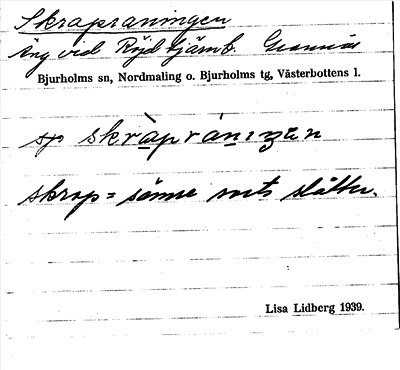 Skrapraningen
äng vid Röjdtjärnb.
Bjurholms sn, Nordmaling o. Bjurholms tg, Västerbottens l.
skràpránıŋen
skrap = sämre slåtter.
Lisa Lidberg 1939.